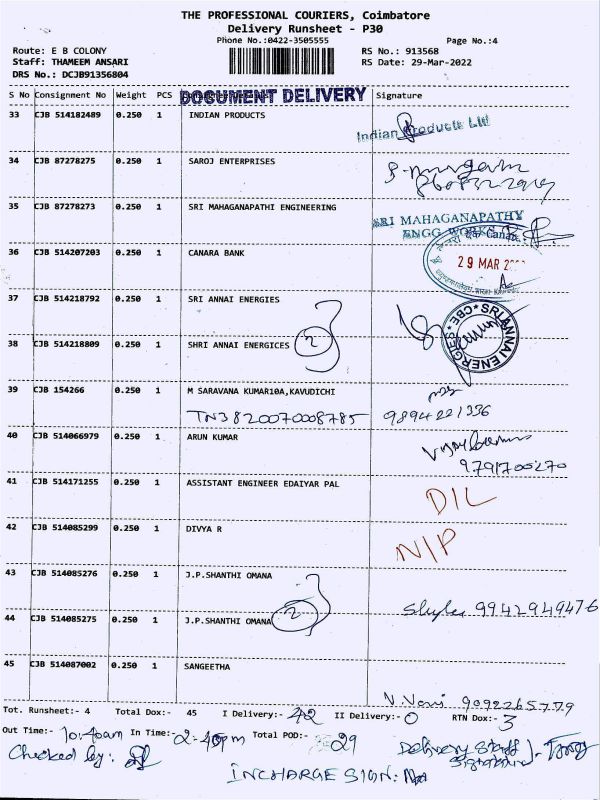 THE PROFESSIONAL COURIERS, Coimbatore
Delivery Runsheet - P30
Phone No.:0422-3505555
Page No.:4
Route: E B COLONY
RS No.: 913568
Staff: THAMEEM ANSARI
RS Date: 29-Mar-2022
DRS No.: DCJB91356804
S No Consignment No Weight PCS DOCUMENT DELIVERY Signature
33 CJB 514182489 0.250 1 INDIAN PRODUCTS
Indian Products Ltd
34 CJB 87278275 0.250 1 SAROJ ENTERPRISES
35 CJB 87278273 0.250 1 SRI MAHAGANAPATHI ENGINEERING
SRI MAHAGANAPATHY
ENGG WORKS
36 CJB 514207203 0.250 1 CANARA BANK
29 MAR
37 CJB 514218792 0.250 1 SRI ANNAI ENERGIES
SRI ANNAI ENERGIES * CBE *
38 CJB 514218809 0.250 1 SHRI ANNAI ENERGICES 2
39 CJB 154266 0.250 1 M SARAVANA KUMAR10A,KAVUDICHI
TN3820070008785 9894221336
40 CJB 514066979 0.250 1 ARUN KUMAR
9791700270
41 CJB 514171255 0.250 1 ASSISTANT ENGINEER EDAIYAR PAL
D/L
42 CJB 514085299 0.250 1 DIVYA R
N/P
43 CJB 514085276 0.250 1 J.P.SHANTHI OMANA
9942949476
44 CJB 514085275 0.250 1 J.P.SHANTHI OMANA 2
45 CJB 514087002 0.250 1 SANGEETHA
9092265779
Tot. Runsheet:- 4 Total Dox:- 45 I Delivery:- 42 II Delivery:- 0 RTN Dox:- 3
Out Time:- 10:40am In Time:- 2-40pm Total POD:- 29
Delivery Staff
Signature
Checked by:
INCHARGE SIGN: